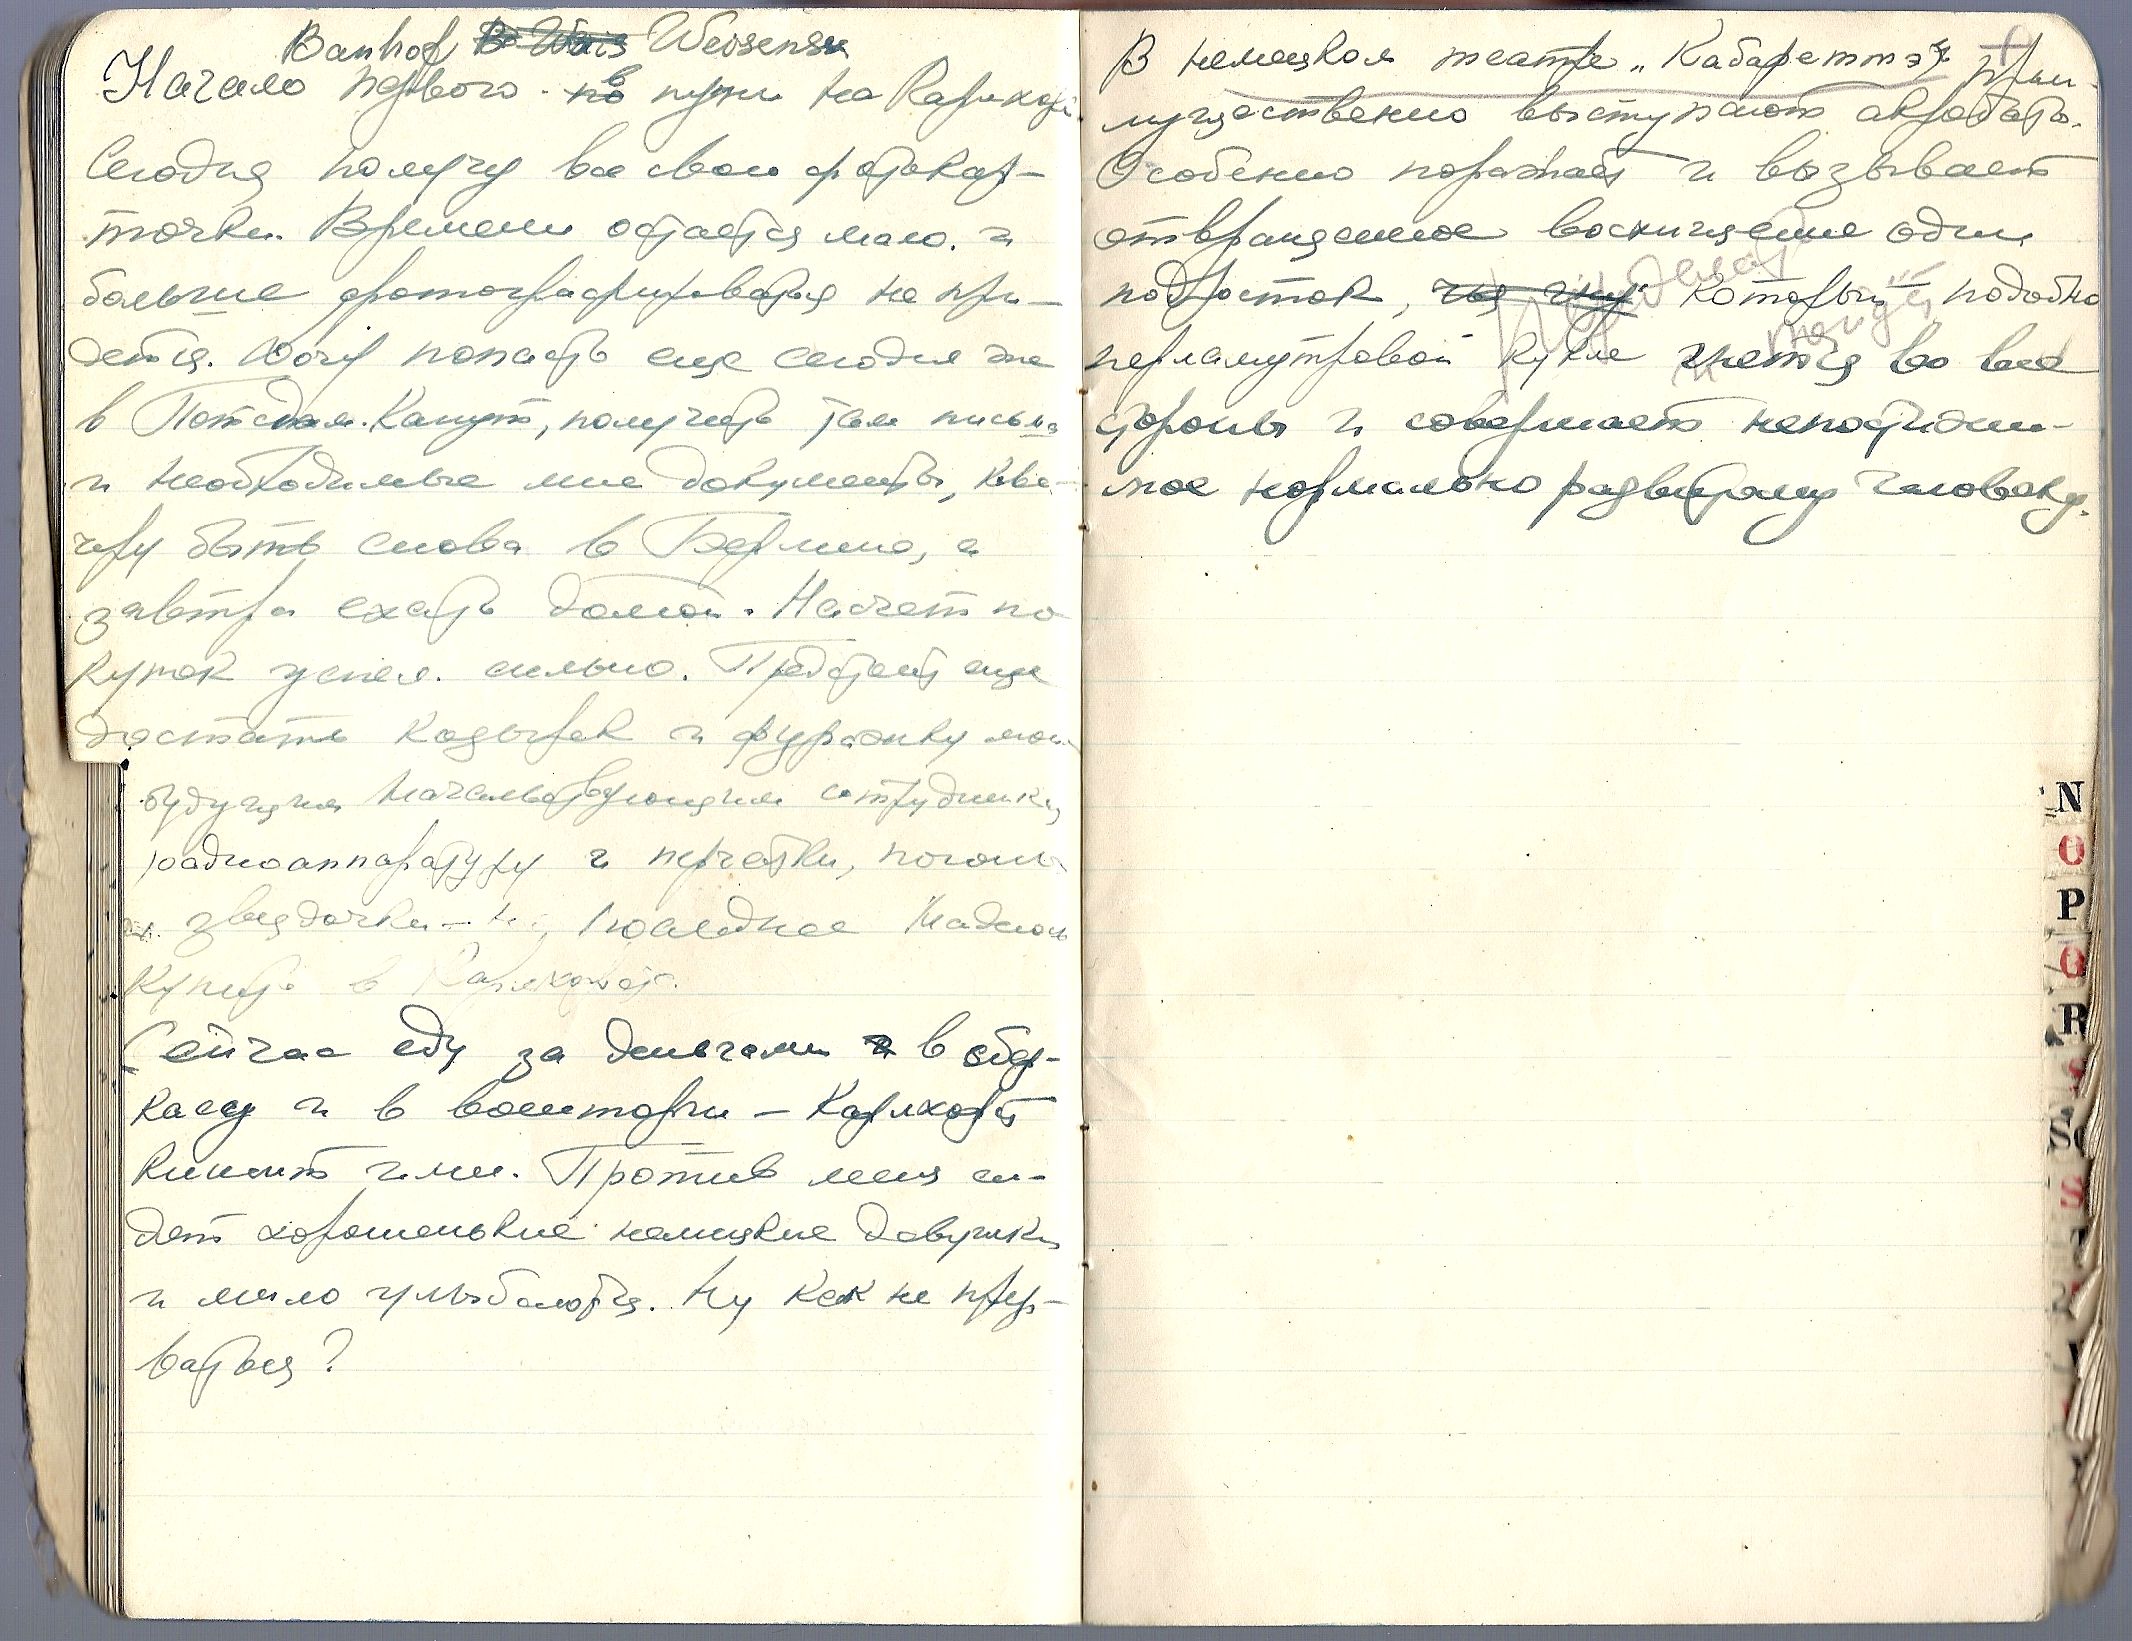 Banhof Weisensee
Начало первого. в пути на Карлхорст.
Сегодня получу все свои фотокар-
точки. Времени остается мало. и
больше фотографироваться не при-
дется. Хочу попасть еще сегодня же
в Потсдам. Капут, получить там письма
и необходимые мне документы, к ве-
черу быть снова в Берлине, а
завтра ехать домой. Насчет по
купок успел. сильно. Предстоит еще
достать козырек и фуражку моим
будущим начальствующим сотрудникам,
радиоаппаратуру и перчатки, погоны
и звездочки – последнее надеюсь
купить в Карлхорсте.
Сейчас еду за деньгами в сбер-
кассу и в военторги – Карлхорст
кишит ими. Против меня си-
дят хорошенькие немецкие девушки
и мило улыбаются. Ну как не прер-
ваться?
В немецком театре „Кабареттэ" преи-
мущественно выступают акробаты.
Особенно поражает и вызывает
отвращенное восхищение один
подросток, чья который подобно
перламутровой кукле гнется во все
стороны и совершает непостижи-
мое нормально развитому человеку.
N
O
P
Q
R
S